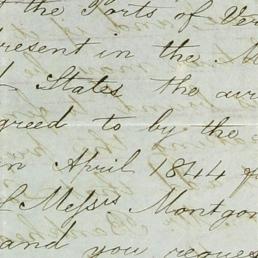 t the Ports of Ver
present in the M
d States the arr
greed to by the
n April 1844
Messrs Montgom
and you reques